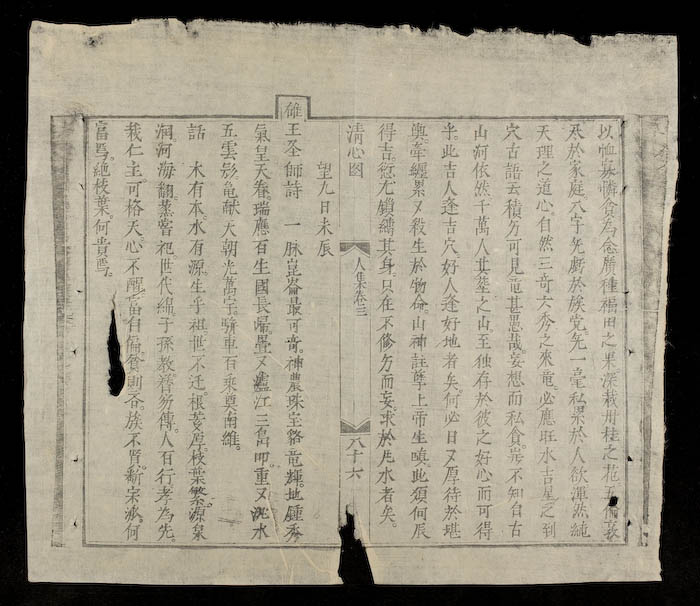 以恤寡憐貧為念廣種福田之果深栽丹桂之花五倫敦
於家庭八字先虧於族党先一毫私累於人欲渾然純
天理之道心自然三奇六秀之來竜必應旺水吉星之到
穴古語云積方可見竜甚愚哉妄想而私貪豈不知自古
山河依然千萬人其塋之山至独存於彼之好心而可得
乎此吉人逢吉穴好人逢好地者矣何必日又厚待於堪
輿牽纏累又殺生於物命山神註孽上帝生嗔此須何辰
得吉愆尤鎖縛其身只在不修方而妄求於凢水者矣
清心図
人集卷三
八十六
望九日未辰
雒王圣師詩 一脉崑崙最可奇神農珠宝簵竜輝地鍾秀
氣皇天眷瑞應百生國長帰疊又瀘江三島叩重又洮水
五雲彩亀献天朝光萬宇驕車百乘奠南維
話 木有本水有源生乎祖世不迁根荄厚枝葉繁源泉
洞河海翻蒸嘗祀世代綿子孫教養勿傳人百行孝為先
栽仁主可格天心不醒富自偏貧則吝族不賢新宗承何
富焉絶枝葉何貴焉